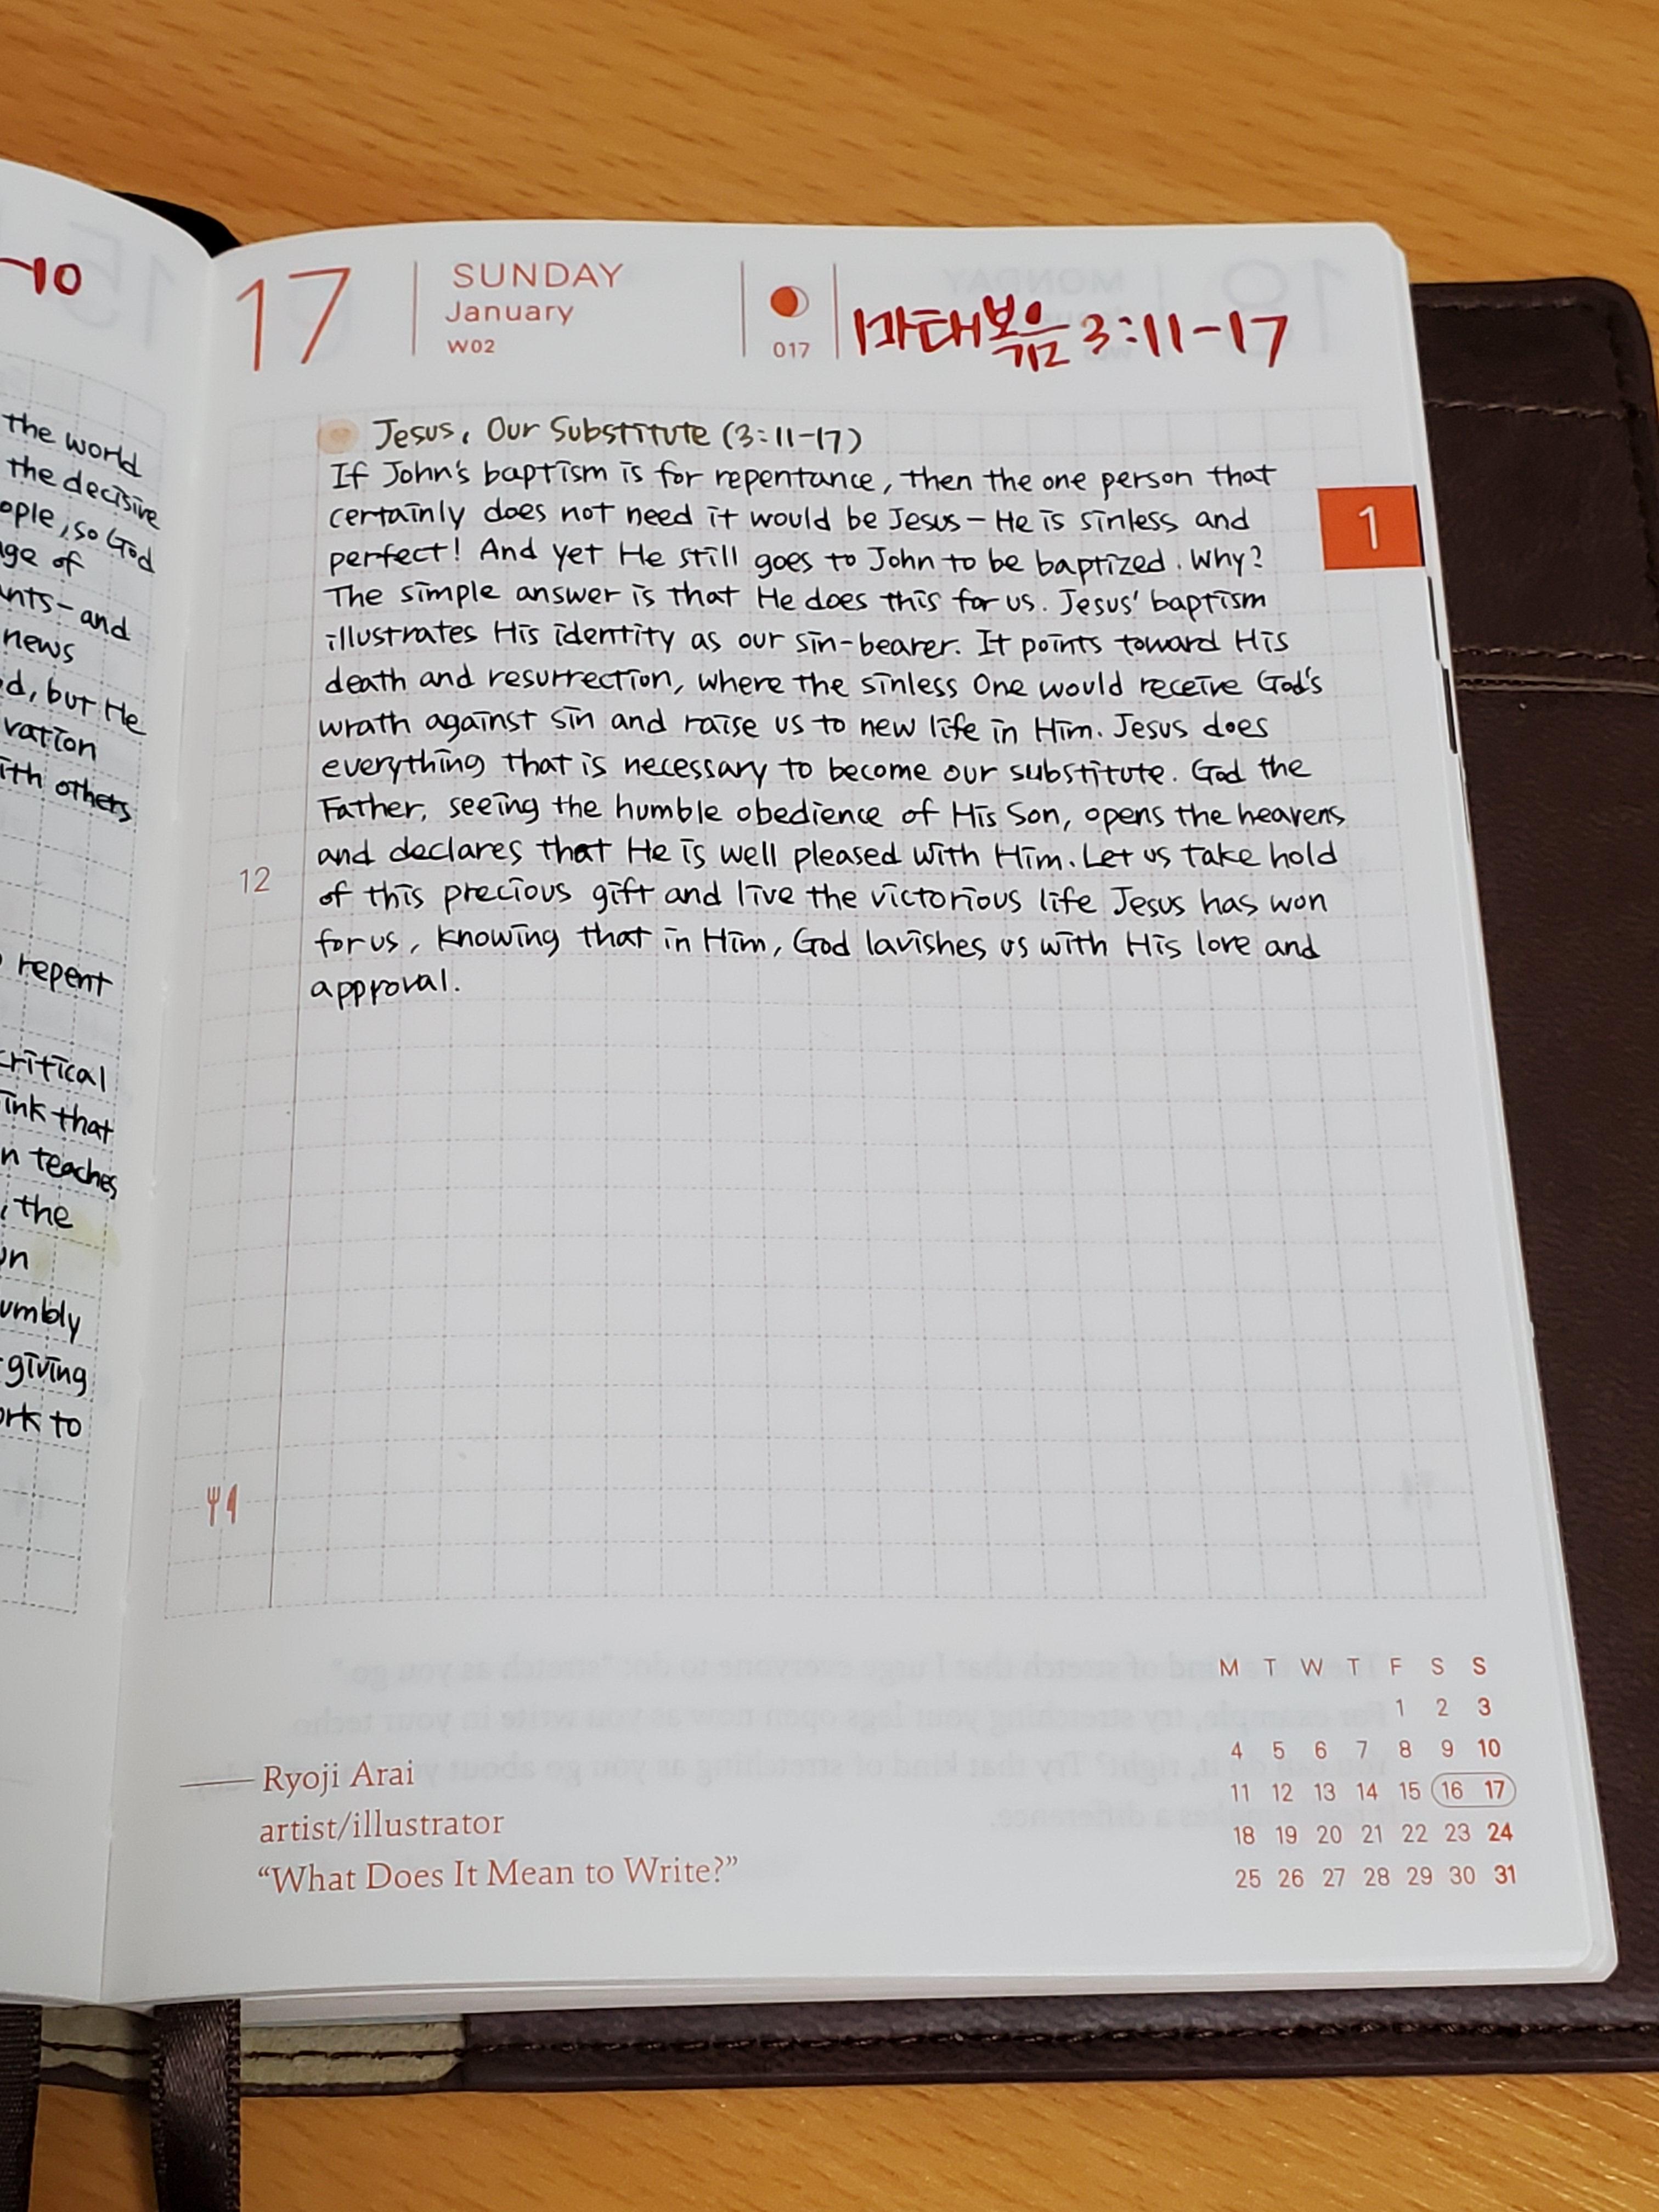 -10
the world
the decisive
ople, so God
age of
nts- and
news
d, but He
vation
ith others
repent
critical
ink that
n teaches
, the
on
umbly
giving
ork to
17
SUNDAY
January
W02
017
마태복음 3:11-17
Jesus, Our Substitute (3:11-17)
If John's baptism is for repentance, then the one person that
certainly does not need it would be Jesus - He is sinless and
perfect! And yet He still goes to John to be baptized. Why?
The simple answer is that He does this for us. Jesus' baptism
illustrates His identity as our sin-bearer. It points toward His
death and resurrection, where the sinless One would receive God's
wrath against sin and raise us to new life in Him. Jesus does
everything that is necessary to become our substitute. God the
Father, seeing the humble obedience of His Son, opens the heavens
and declares that He is well pleased with Him. Let us take hold
of this precious gift and live the victorious life Jesus has won
for us, knowing that in Him, God lavishes us with His love and
approval.
1
12
Ryoji Arai
artist/illustrator
“What Does It Mean to Write?”
M T W T F S S
1 2 3
4 5 6 7 8 9 10
11 12 13 14 15 16 17
18 19 20 21 22 23 24
25 26 27 28 29 30 31